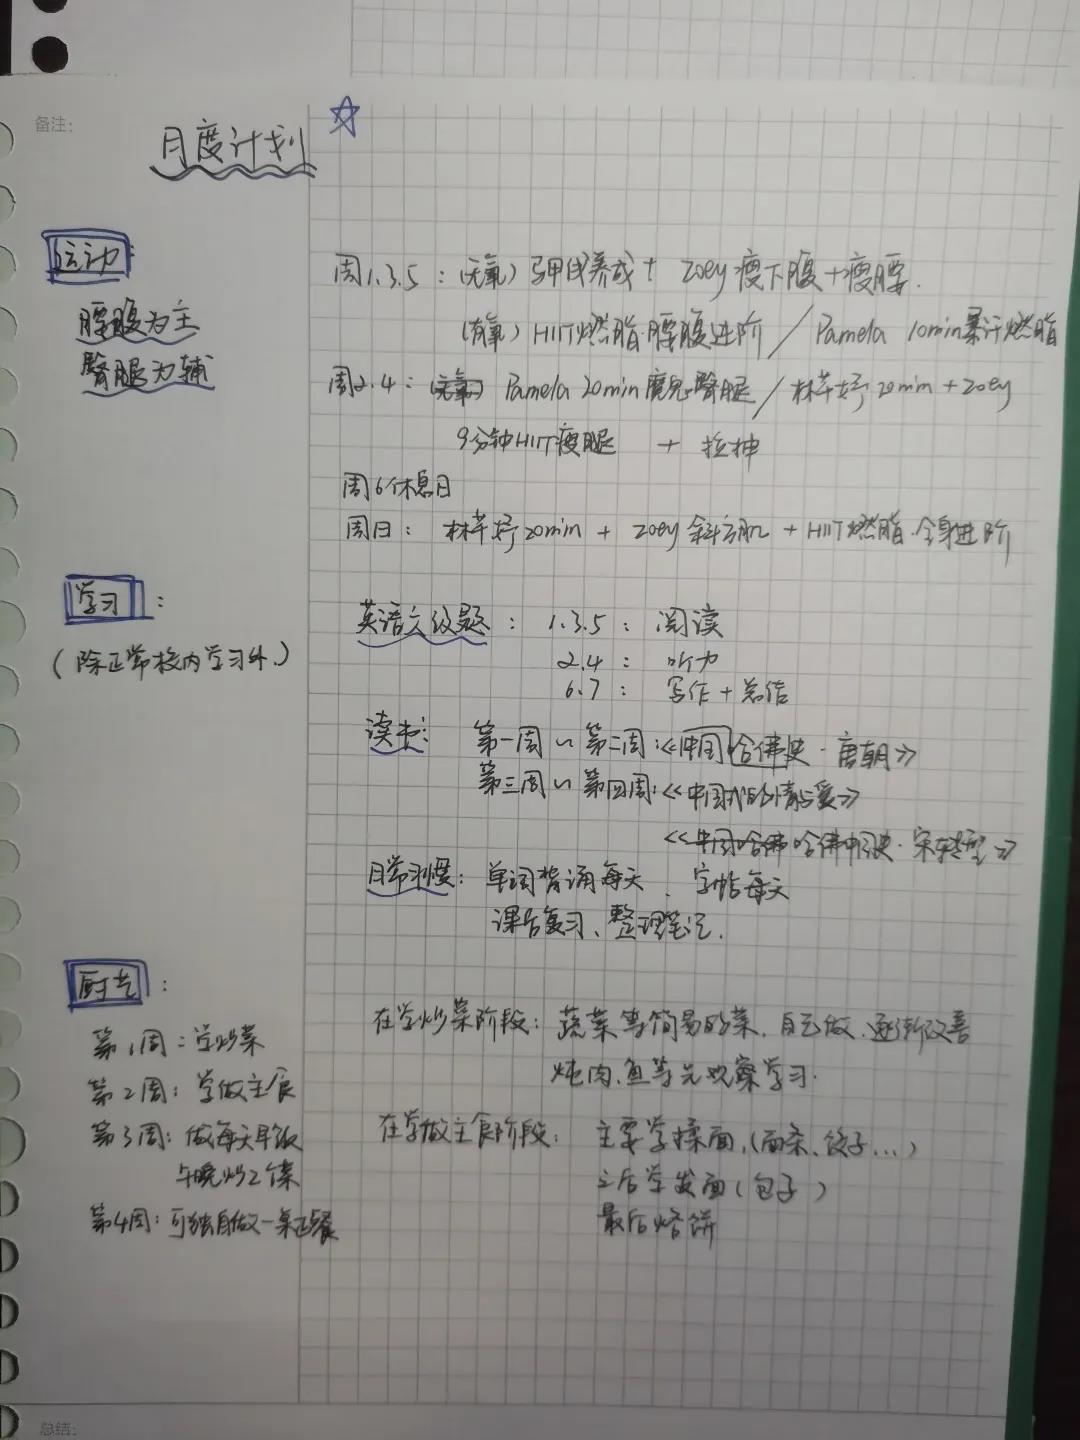 备注:
月度计划
运动:
腰腹为主
臀腿为辅
周1.3.5:(无氧)马甲线养成+Zoey瘦下腹+瘦腰.
(有氧)HIIT燃脂·腰腹进阶/Pamela 10min暴汗燃脂
周2.4:(无氧)Pamela 20min魔鬼臀腿/林芊妤20min+Zoey
9分钟HIIT瘦腿 + 拉抻
周6休息日
周日:林芊妤20min + Zoey斜方肌 + HIIT燃脂·全身进阶
学习:
(除正常校内学习外.)
英语六级题:1.3.5:阅读
2.4:听力
6.7:写作+总结
读书:第一周~第二周:《中国哈佛史·唐朝》
第三周~第四周:《中国式的情与爱》
《哈佛中国史·宋转型》
日常习惯:单词背诵每天、字帖每天
课后复习、整理笔记.
厨艺:
第1周:学炒菜
第2周:学做主食
第3周:做每天早饭
午晚炒2个菜
第4周:可独自做一桌正餐
在学炒菜阶段:蔬菜等简易的菜,自己做,逐渐改善
炖肉、鱼等先观察学习.
在学做主食阶段:主要学揉面,(面条、饺子...)
之后学发面(包子)
最后烙饼
总结: